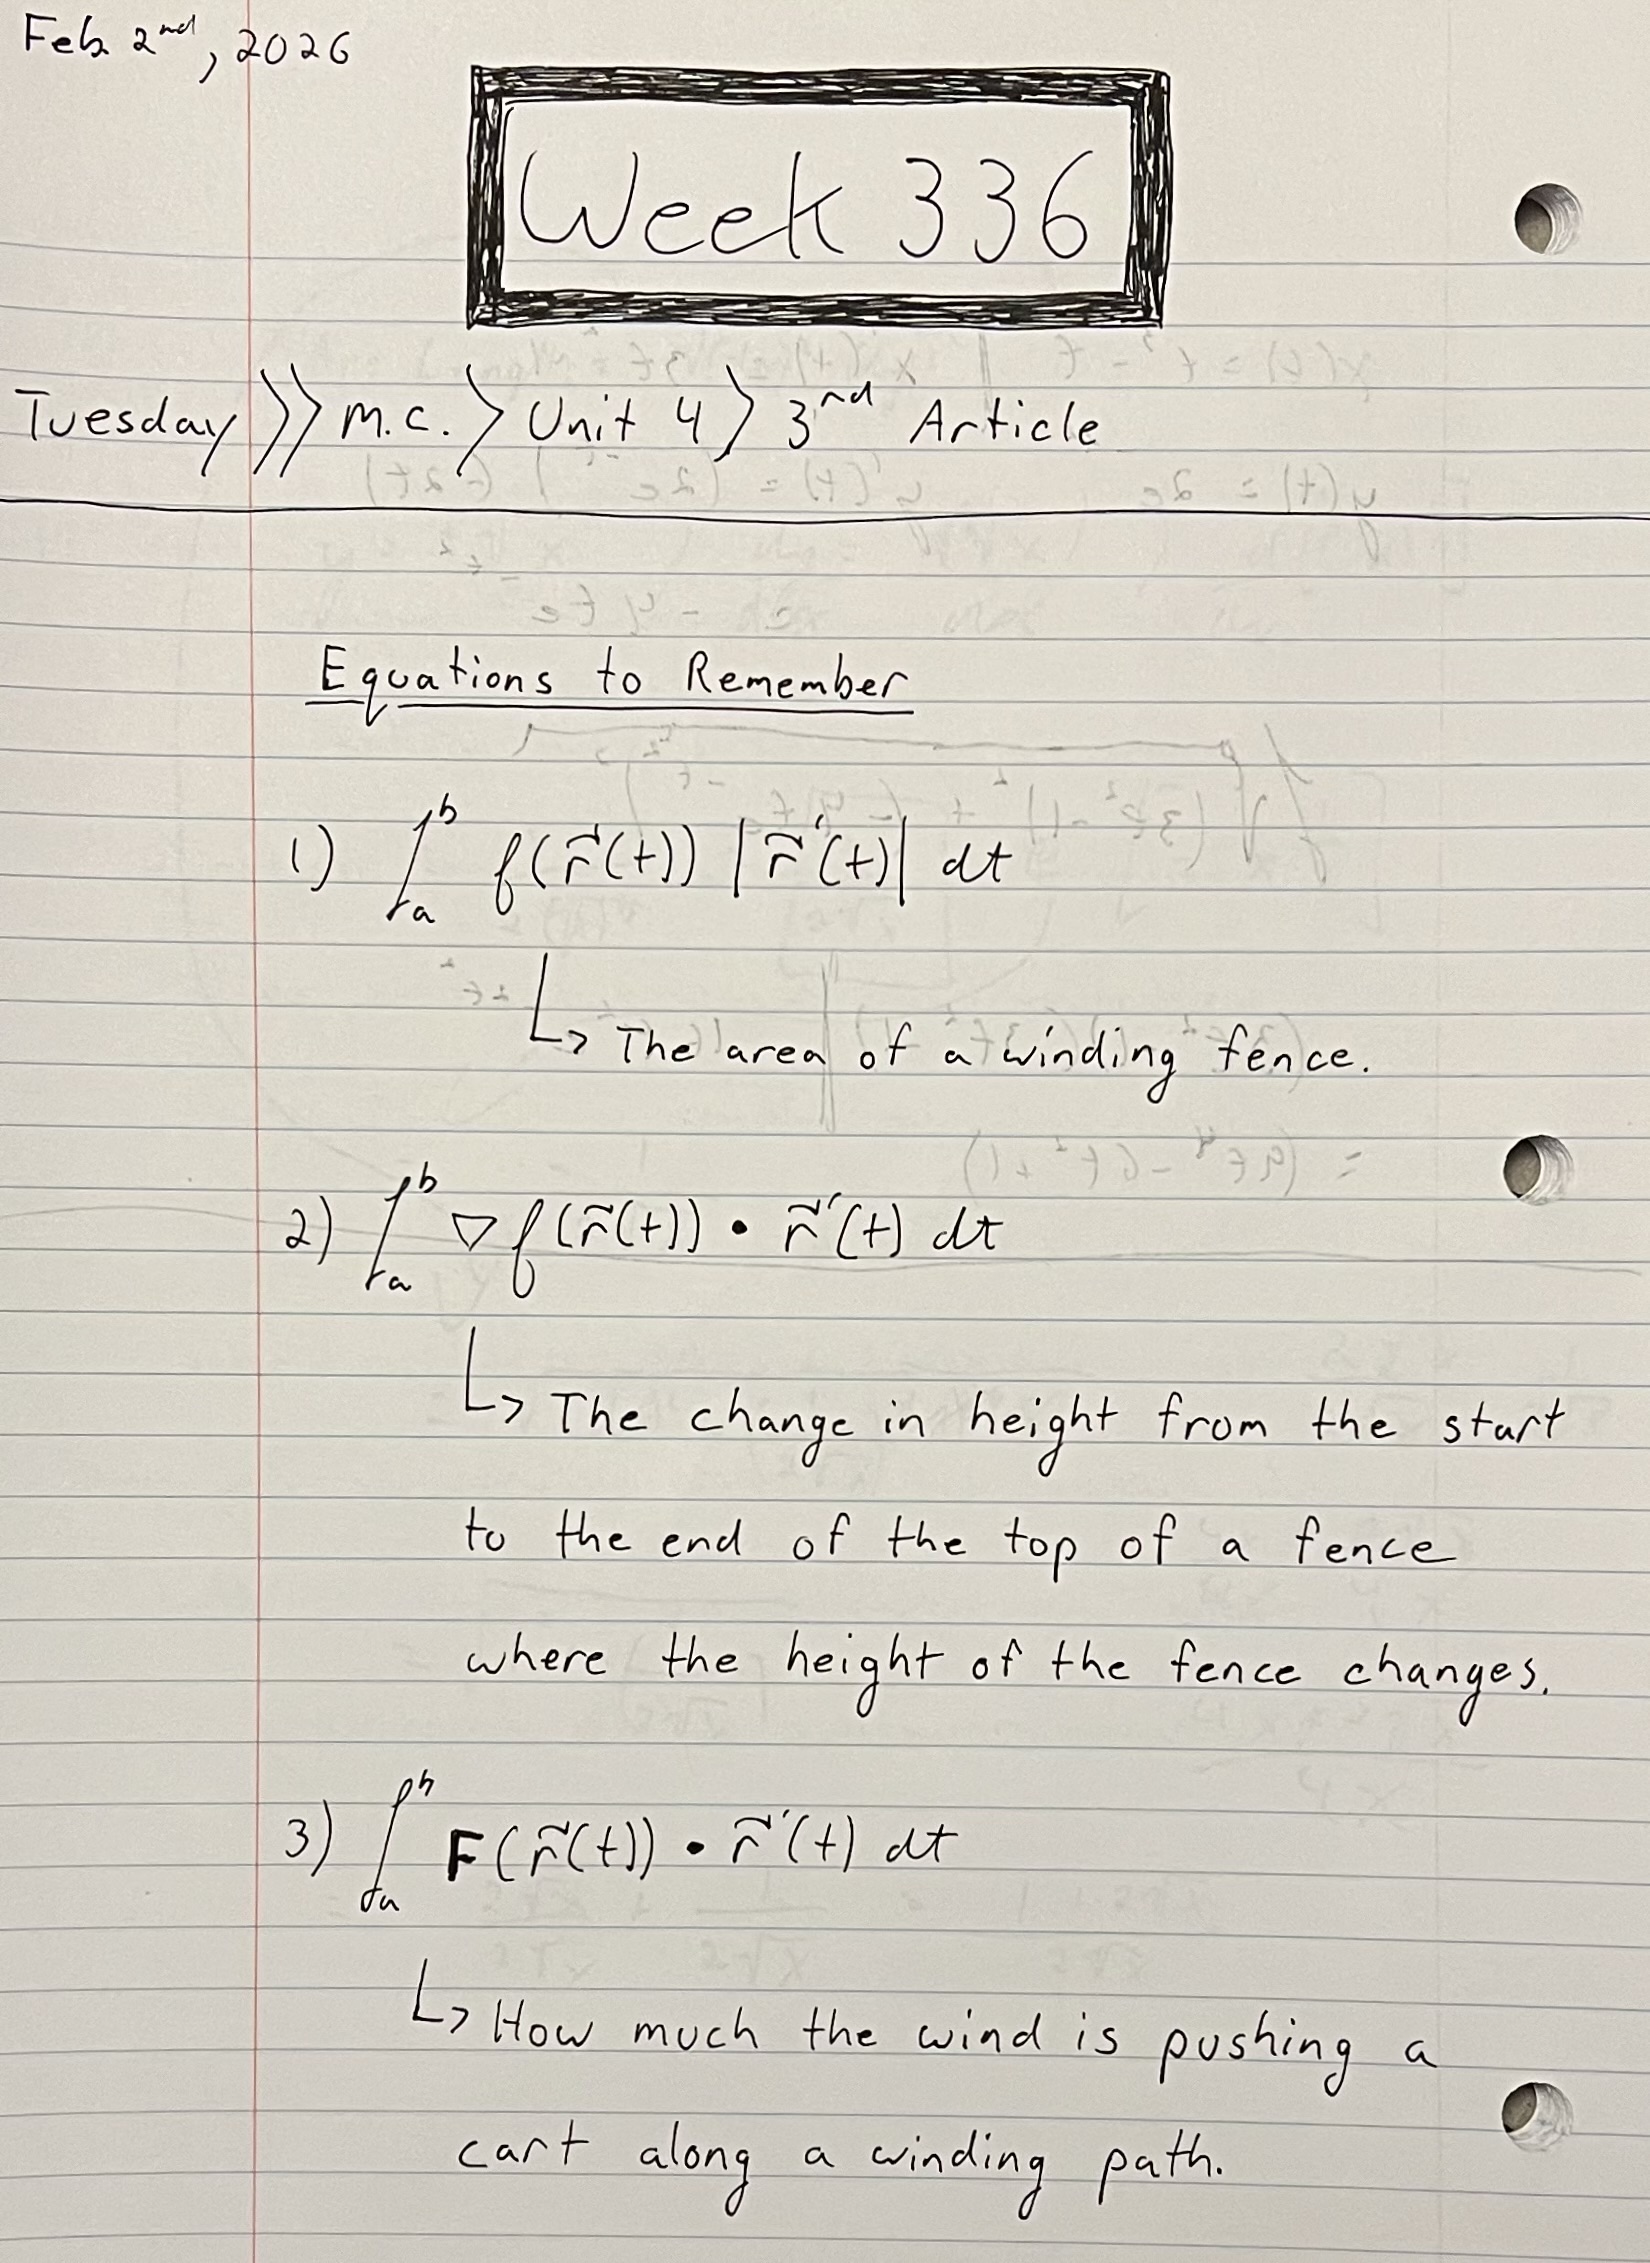 Feb 2nd, 2026
Week 336
Tuesday >> M.C. > Unit 4 > 3rd Article
Equations to Remember
1) ∫ₐᵇ f(r⃗(t)) |r⃗′(t)| dt
↳ The area of a winding fence.
2) ∫ₐᵇ ∇f(r⃗(t)) • r⃗′(t) dt
↳ The change in height from the start
to the end of the top of a fence
where the height of the fence changes.
3) ∫ₐᵇ F(r⃗(t)) • r⃗′(t) dt
↳ How much the wind is pushing a
cart along a winding path.